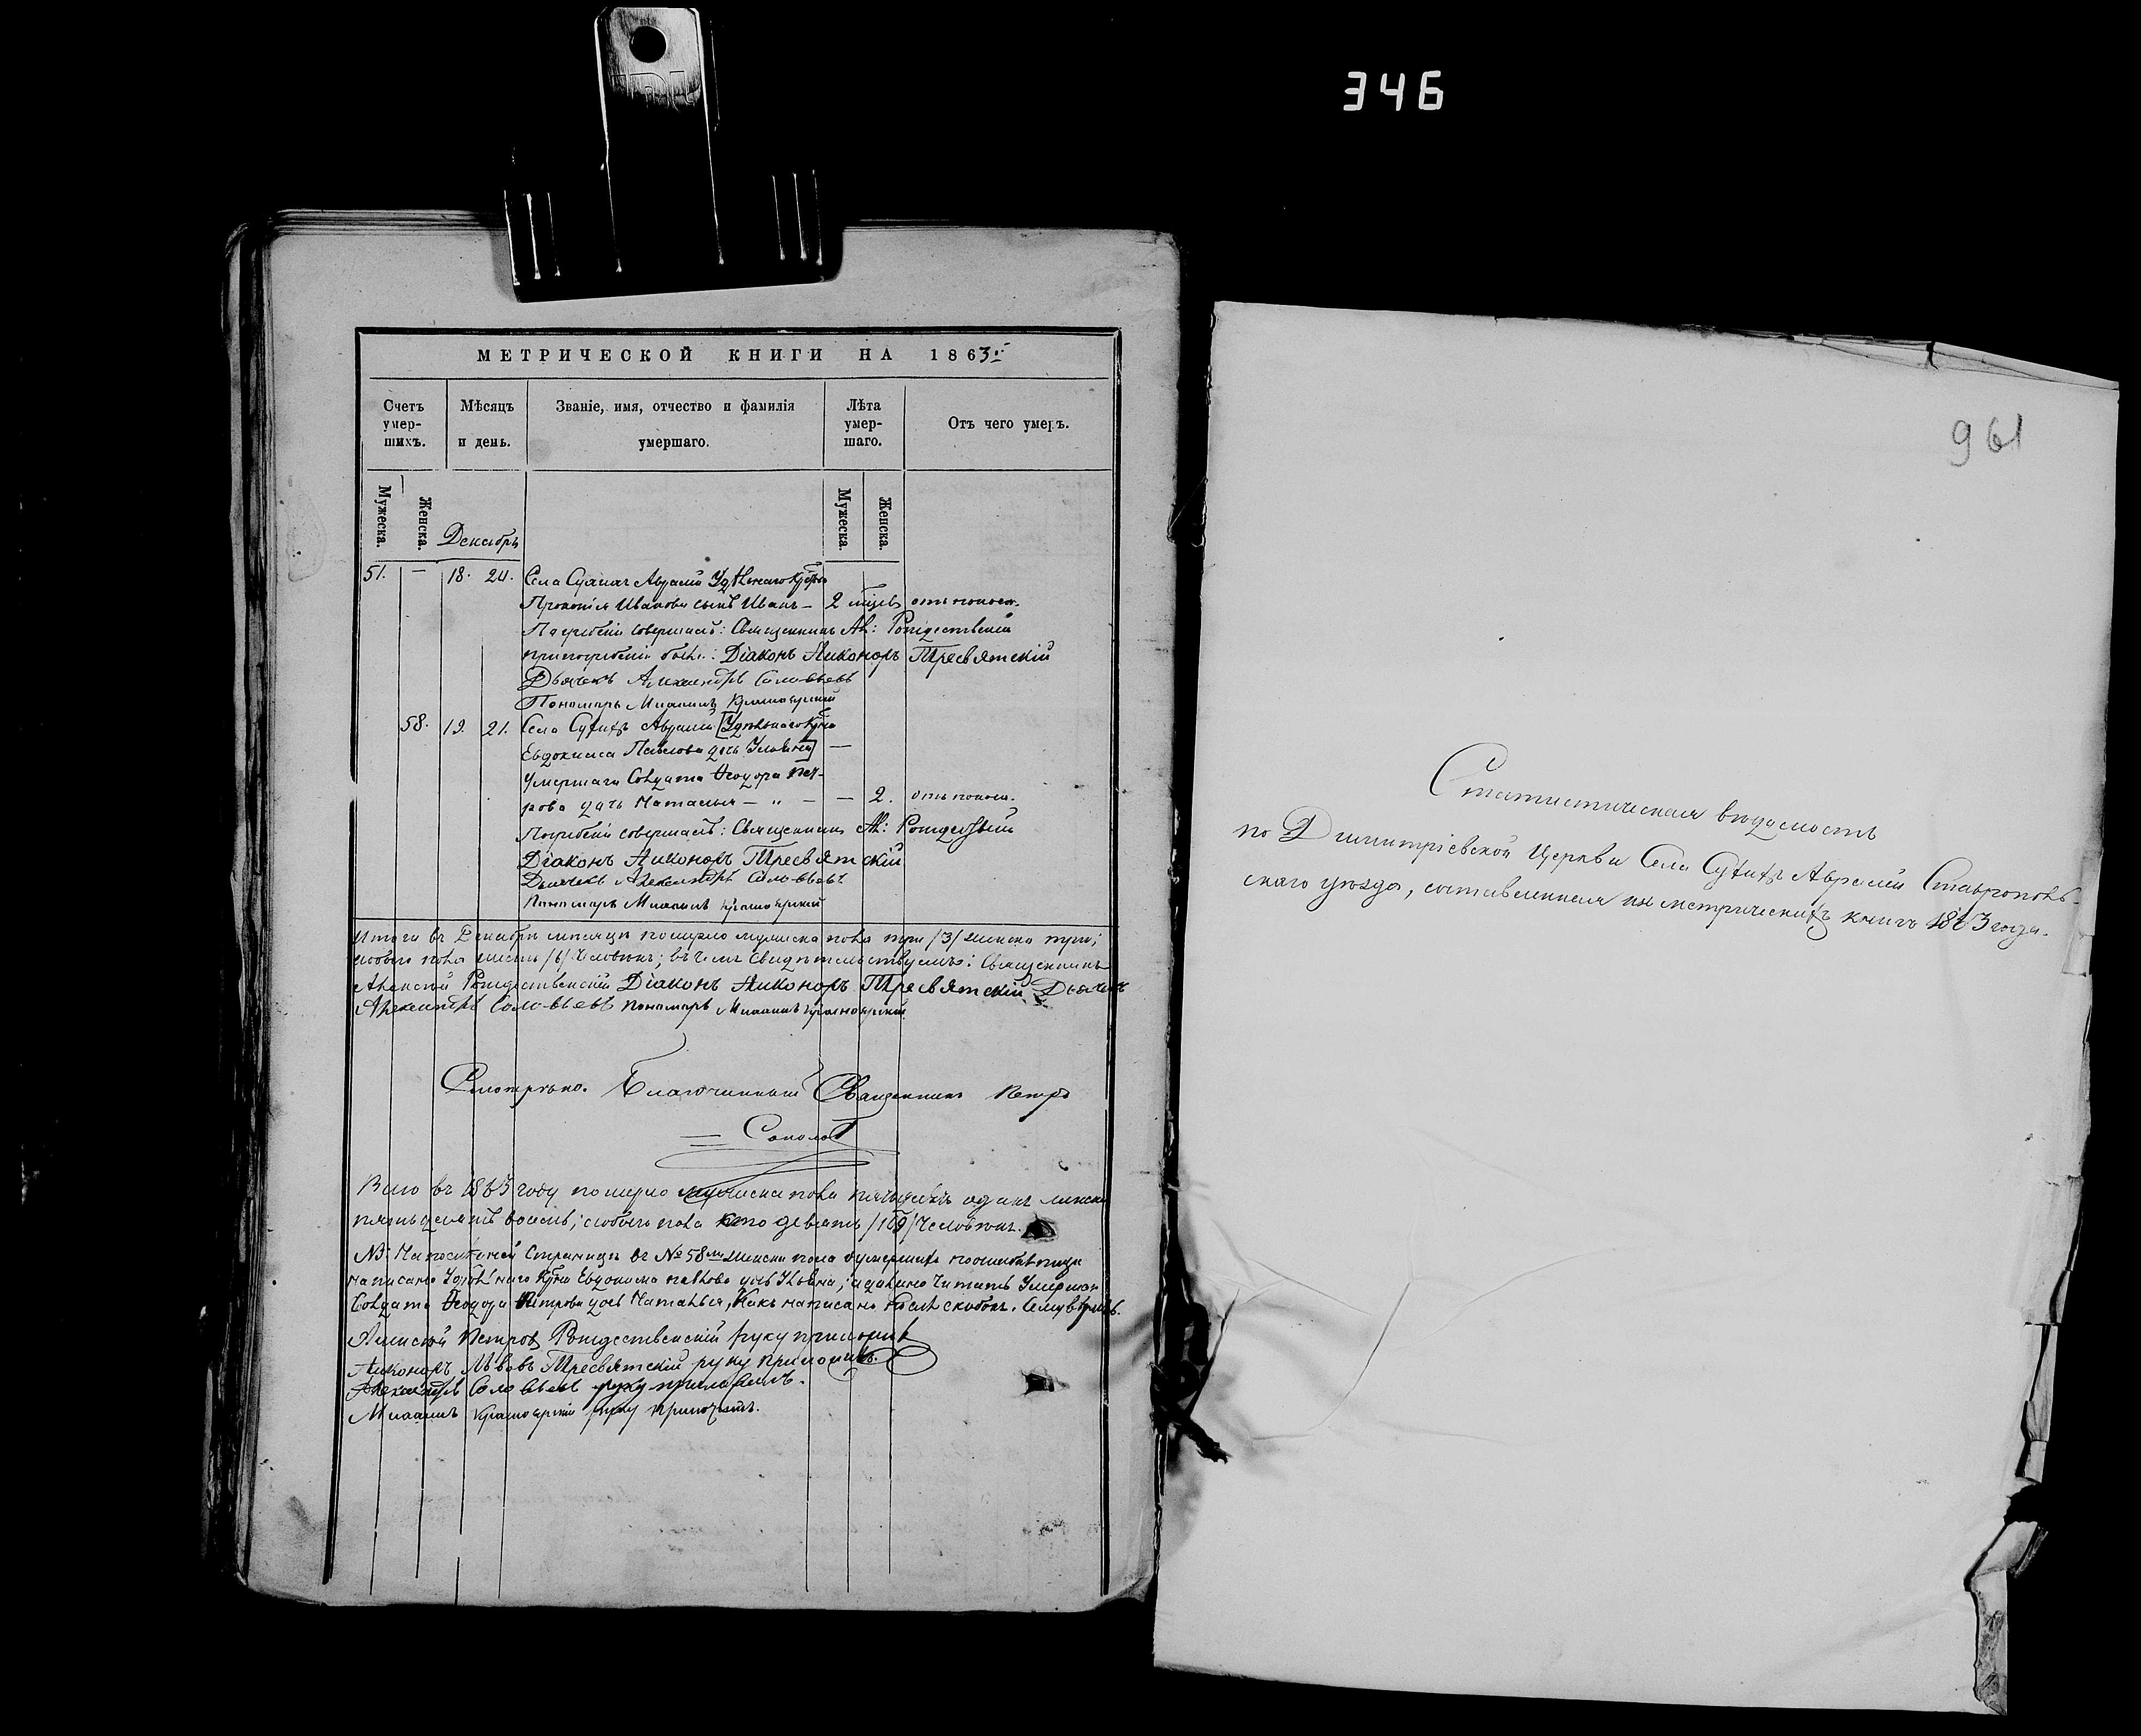 346
МЕТРИЧЕСКОЙ КНИГИ НА 1863й
Счетъ умер-шихъ.
Мѣсяцъ и день.
Званіе, имя, отчество и фамилія умершаго.
Лѣта умер-шаго.
Отъ чего умеръ.
Мужеска.
Женска.
Декабрь
Мужеска.
Женска.
51. — 18. 20. Села Авралей Удѣльнаго
Прокопія Иванова сынъ Иванъ — 2 отъ поноса.
Погребеніе совершалъ: Священникъ Ал: Рождественскій
при погребеніи были: Діаконъ Никоноръ Тресвятскій
Дьячекъ Александръ Соловьевъ
Пономарь Михаилъ Красноярскій
58. 19. 21. Села Авралей [Удѣльнаго
Евдокима Павлова дочь Ульяна] —
Умершаго Солдата Ѳеодора Пет-
рова дочь Наталья — „ — — 2. отъ поноса.
Погребеніе совершалъ: Священникъ Ал: Рождественскій
Діаконъ Никоноръ Тресвятскій
Дьячекъ Александръ Соловьевъ
Пономарь Михаилъ Красноярскій
Итого въ Декабрѣ мѣсяцѣ померло мужеска пола три /3/ женска три;
обоего пола шесть /6/ человѣкъ; въ чемъ свидѣтельствуемъ: Священникъ
Алексѣй Рождественскій Діаконъ Никоноръ Тресвятскій Дьячекъ
Александръ Соловьевъ Пономарь Михаилъ Красноярскій
Смотрѣно. Благочинный Священникъ Петръ
Соколовъ
Всего въ 1863 году померло мужеска пола пятьдесятъ одинъ женска
пятьдесятъ восемь; обоего пола сто девять /109/ человѣкъ.
NB. На послѣдней страницѣ въ № 58мъ женска пола умершихъ по ошибкѣ
написано Удѣльнаго Евдокима Павлова дочь Ульяна; а должно читать Умершаго
Солдата Ѳеодора Петрова дочь Наталья, какъ написано послѣ скобокъ.
Алексѣй Петровъ Рождественскій руку приложилъ
Никоноръ Львовъ Тресвятскій руку приложилъ.
Александръ Соловьевъ руку приложилъ.
Михаилъ Красноярскій руку приложилъ.
961
Статистическая вѣдомость
по Димитріевской Церкви Села Авралей Ставрополь-
скаго уѣзда, составленная изъ метрическихъ книгъ 1863 года.